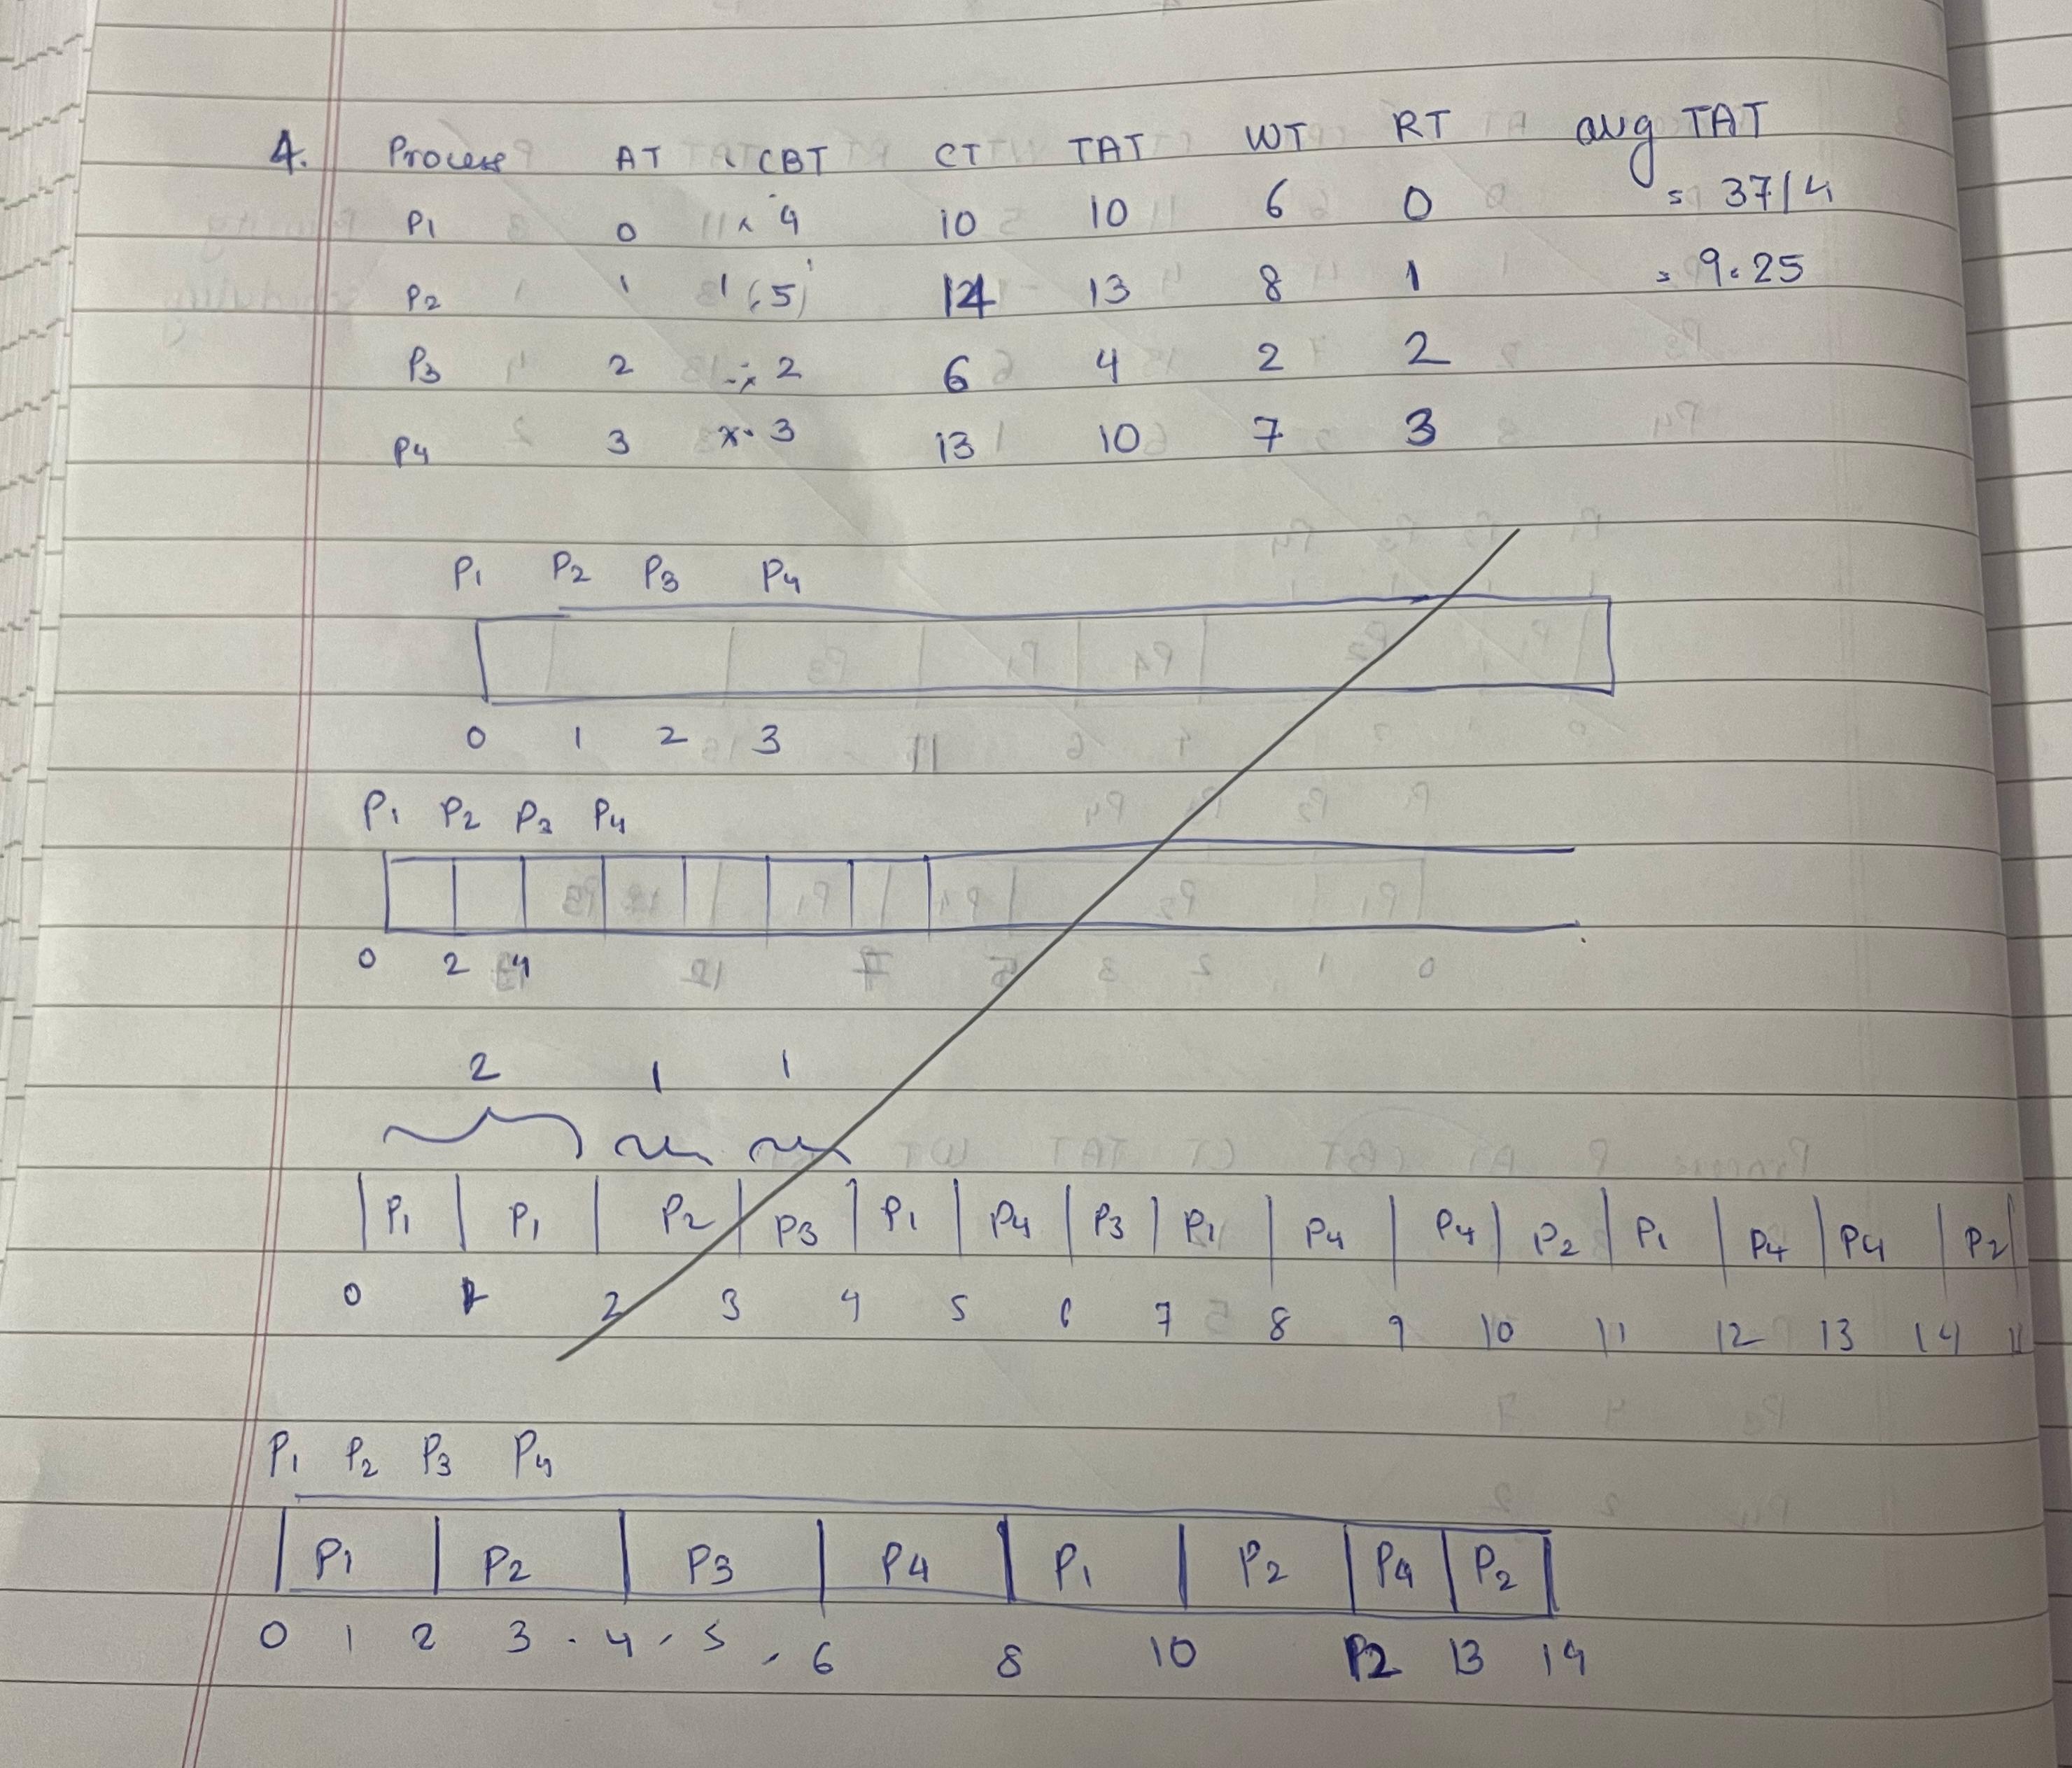 4. Process AT CBT CT TAT WT RT avg TAT
P1 0 4 10 10 6 0 = 37/4
P2 1 5 14 13 8 1 = 9.25
P3 2 2 6 4 2 2
P4 3 3 13 10 7 3
P1 P2 P3 P4
0 1 2 3
P1 P2 P3 P4
0 2 4
2 1 1
P1 P1 P2 P3 P1 P4 P3 P1 P4 P4 P2 P1 P4 P4 P2
0 1 2 3 4 5 6 7 8 9 10 11 12 13 14
P1 P2 P3 P4
P1 P2 P3 P4 P1 P2 P4 P2
0 1 2 3 4 5 6 8 10 12 13 14